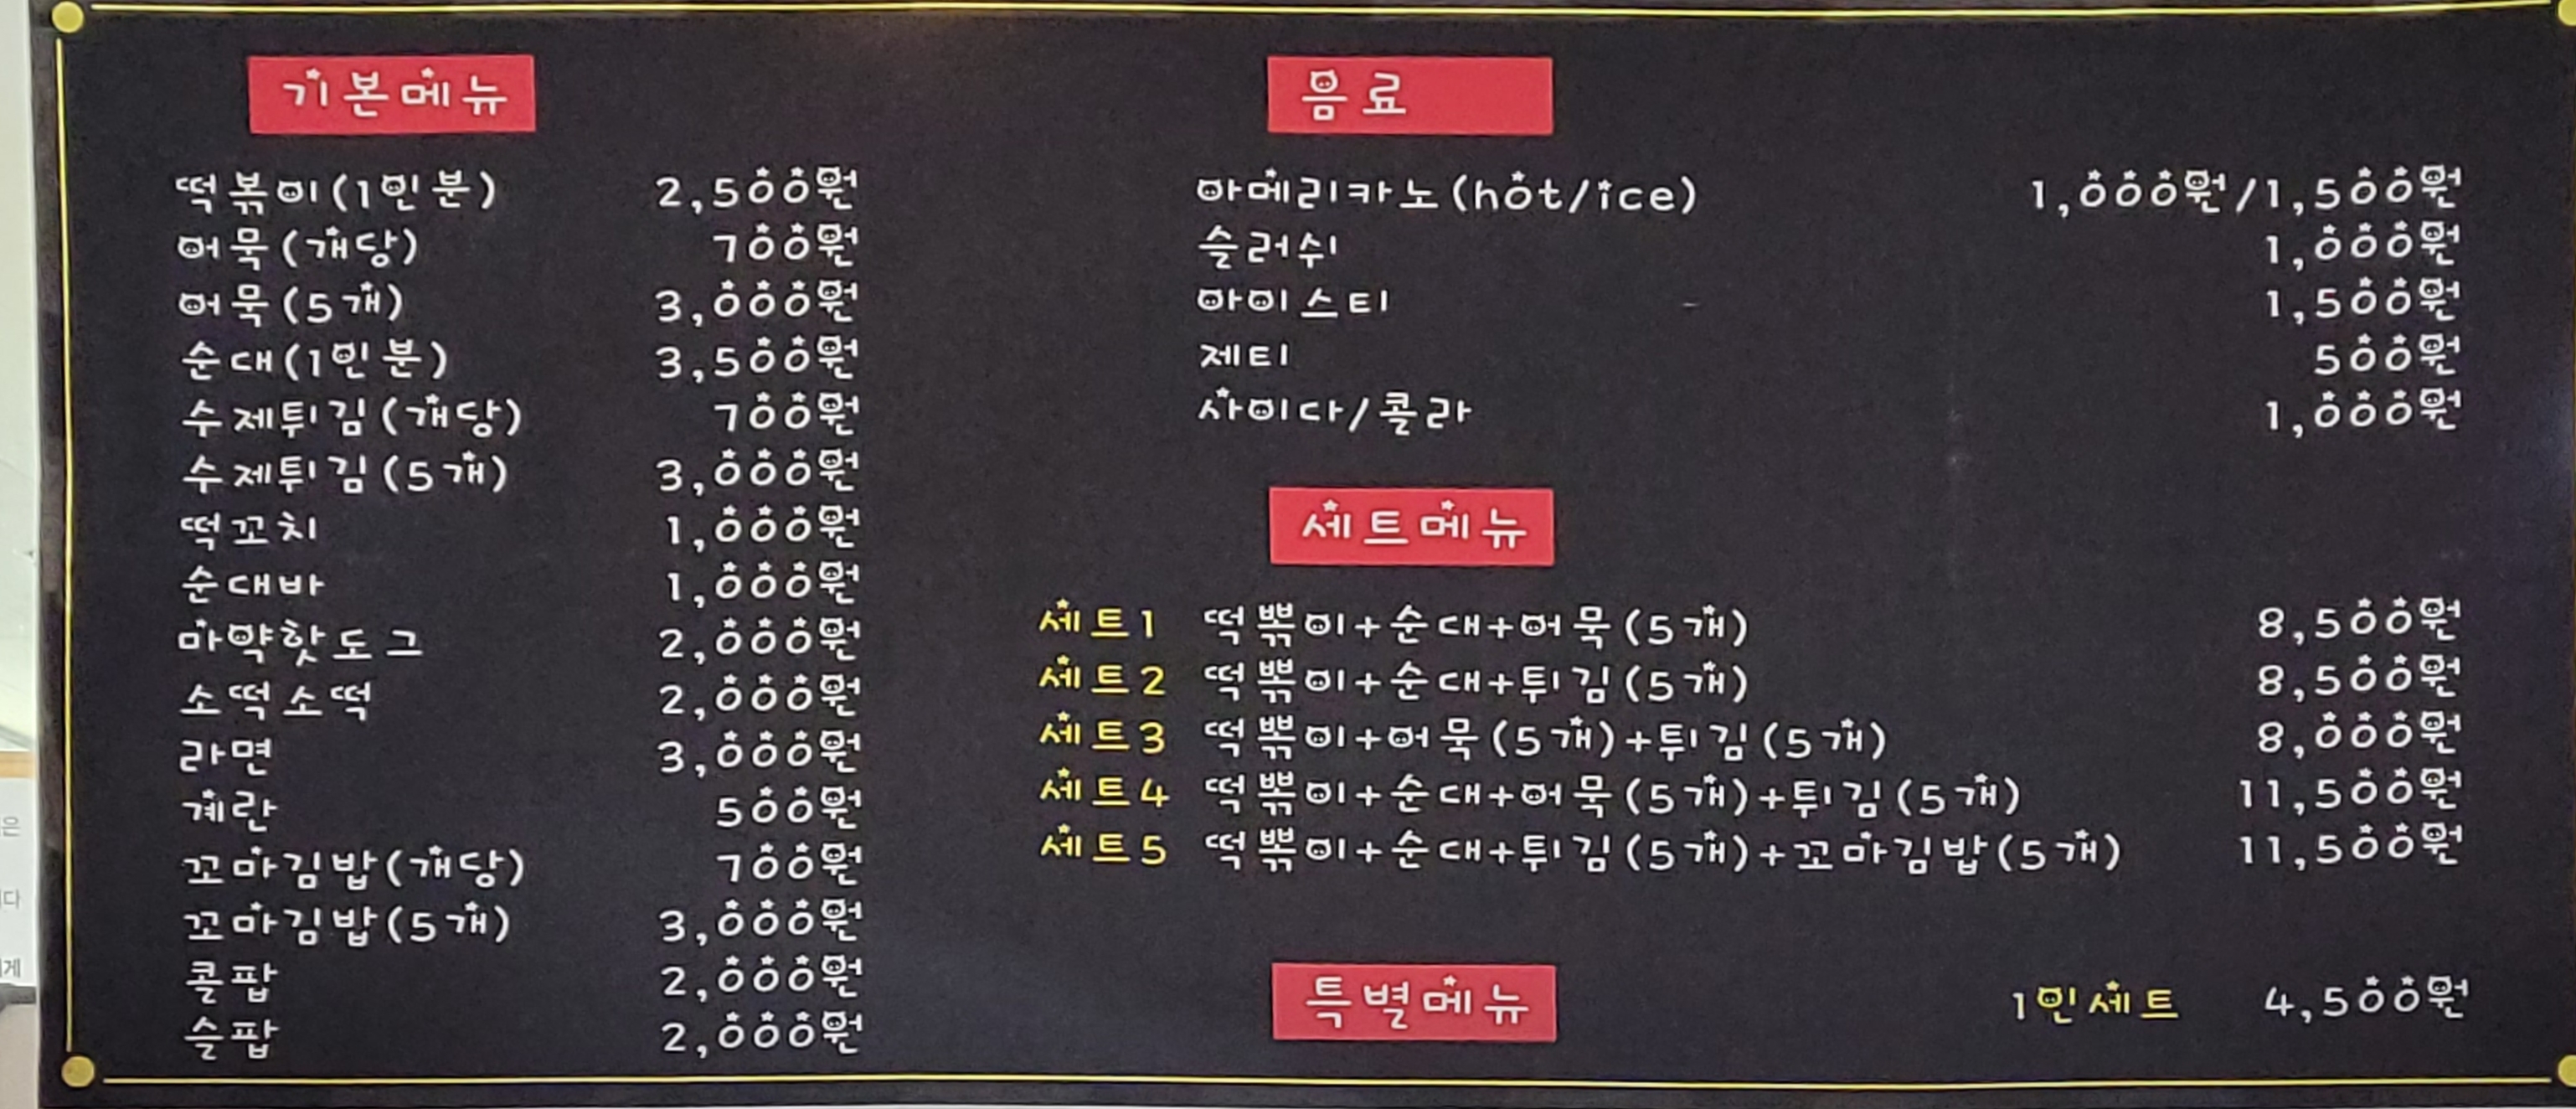 기본메뉴
떡볶이(1인분) 2,500원
어묵(개당) 700원
어묵(5개) 3,000원
순대(1인분) 3,500원
수제튀김(개당) 700원
수제튀김(5개) 3,000원
떡꼬치 1,000원
순대바 1,000원
마약핫도그 2,000원
소떡소떡 2,000원
라면 3,000원
계란 500원
꼬마김밥(개당) 700원
꼬마김밥(5개) 3,000원
콜팝 2,000원
슬팝 2,000원
음료
아메리카노(hot/ice) 1,000원/1,500원
슬러쉬 1,000원
아이스티 1,500원
제티 500원
사이다/콜라 1,000원
세트메뉴
세트1 떡뽂이+순대+어묵(5개) 8,500원
세트2 떡뽂이+순대+튀김(5개) 8,500원
세트3 떡뽂이+어묵(5개)+튀김(5개) 8,000원
세트4 떡뽂이+순대+어묵(5개)+튀김(5개) 11,500원
세트5 떡뽂이+순대+튀김(5개)+꼬마김밥(5개) 11,500원
특별메뉴 1인세트 4,500원
은
다
게